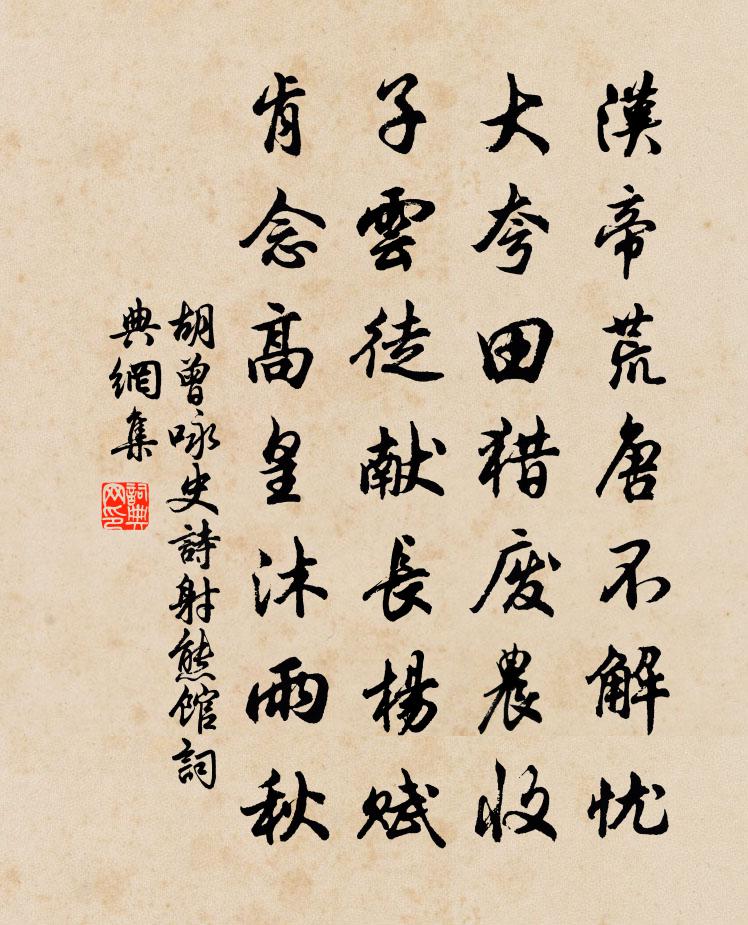 漢帝荒唐不解忧
大夸田猎废農收
子雲徒献長楊赋
肯念高皇沐雨秋
胡曾咏史詩射熊馆詞
典網集
詞典网印